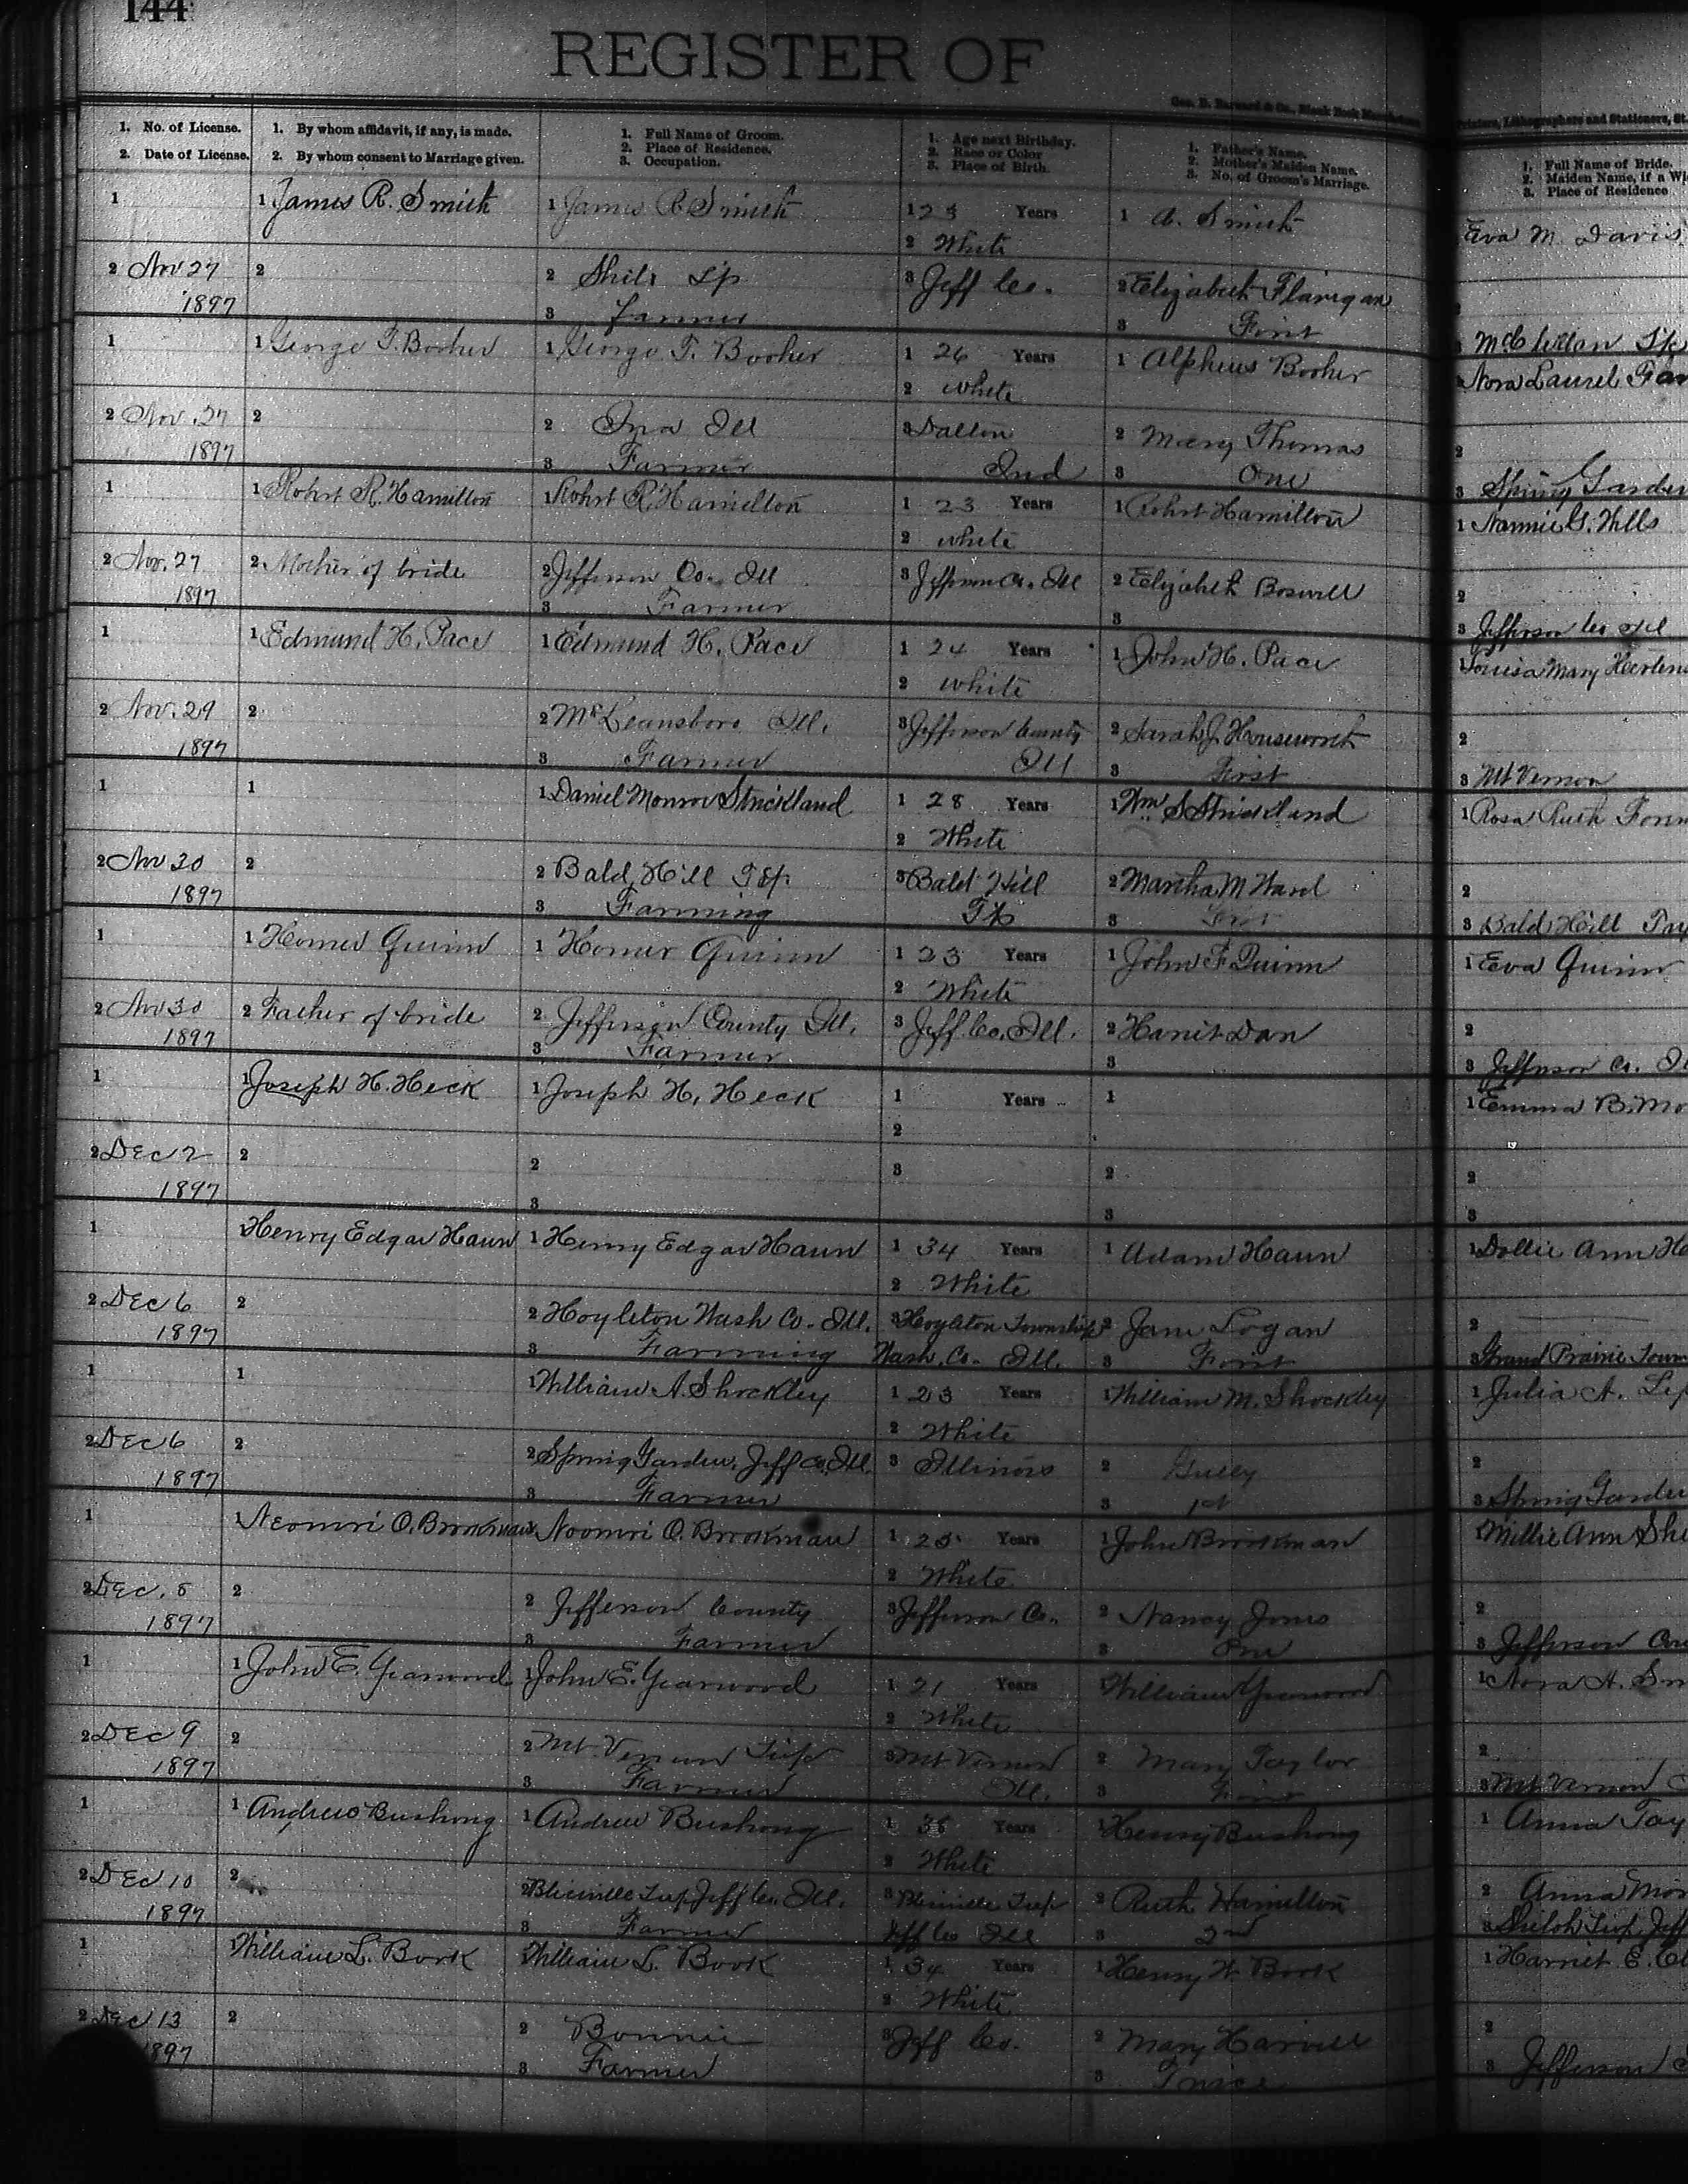 144
REGISTER OF
Geo. D. Barnard & Co., Blank Book
Printers, Lithographers and Stationers, St.
1. No. of License.
2. Date of License.
1. By whom affidavit, if any, is made.
2. By whom consent to Marriage given.
1. Full Name of Groom.
2. Place of Residence.
3. Occupation.
1. Age next Birthday.
2. Race or Color
3. Place of Birth.
1. Father's Name.
2. Mother's Maiden Name.
3. No. of Groom's Marriage.
1. Full Name of Bride.
2. Maiden Name, if a Wi
3. Place of Residence
1
2 Nov 27
1897
1 James R. Smith
2
1 James R Smith
2 Shilo Tp
3 Farmer
1 25 Years
2 White
3 Jeff Co.
1 A. Smith
2 Elizabeth Flanigan
3 First
Eva M Davis
2
3 McClellan Tp
1
2 Nov. 27
1897
1 George F. Booher
2
1 George F. Booher
2 Ina Ill
3 Farmer
1 26 Years
2 white
3 Dalton
Ind
1 Alpheus Booher
2 Mary Thomas
3 One
1 Nora Laurel Far
2
3 Spring Garden
1
2 Nov. 27
1897
1 Robrt R. Hamilton
2 Mother of bride
1 Robrt R. Hamilton
2 Jefferson Co. Ill
3 Farmer
1 23 Years
2 white
3 Jefferson Co. Ill
1 Robrt Hamilton
2 Elizabeth Boswell
3
1 Nannie G. Wells
2
3 Jefferson Co Ill
1
2 Nov. 29
1897
1 Edmund H. Pace
2
1 Edmund H. Pace
2 McLeansboro Ill.
3 Farmer
1 24 Years
2 white
3 Jefferson County
Ill
1 John H. Pace
2 Sarah J Houseworth
3 First
1 Louisa Mary Hertens
2
3 Mt Vernon
1
2 Nov 30
1897
1
2
1 Daniel Monroe Strickland
2 Bald Hill Tsp.
3 Farming
1 28 Years
2 White
3 Bald Hill
Tp
1 Wm S Strickland
2 Martha M Ward
3
1 Rosa Ruth Fonn
2
3 Bald Hill
1
2 Nov 30
1897
1 Homer Quinn
2 Father of bride
1 Homer Quinn
2 Jefferson County Ill.
3 Farmer
1 23 Years
2 White
3 Jeff Co. Ill.
1 John F Quinn
2 Dan
3
1 Eva Quinn
2
3 Jefferson Co. Il
1
2 Dec 2
1897
1 Joseph H. Heck
2
1 Joseph H. Heck
2
3
1 Years
2
3
1
2
3
1 Emma B. Mo
2
3
1
2 Dec 6
1897
1 Henry Edgar Haun
2
1 Henry Edgar Haun
2 Hoyleton Wash Co. Ill.
3 Farming
1 34 Years
2 White
3 Hoyleton Township
Wash. Co. Ill.
1 Adam Haun
2 Jane Logan
3 First
1 Dollie Ann He
2
3 Grand Prairie Town
1
2 Dec 6
1897
1
2
1 William A. Shockley
2 Spring Garden, Jeff Co. Ill.
3 Farmer
1 23 Years
2 White
3 Illinois
1 William M. Shockley
2 Guley
3 1st
1 Julia A.
2
3 Spring Garden
1
2 Dec. 8
1897
1 Neomri O. Brookman
2
1 Noomri O. Brookman
2 Jefferson County
3 Farmer
1 25 Years
2 White
3 Jefferson Co.
1 John Brookman
2 Nancy Jones
3 One
1 Millie Ann Shi
2
3 Jefferson Cou
1
2 Dec 9
1897
1 John E. Yearwood
2
1 John E. Yearwood
2 Mt Vernon Twp
3 Farmer
1 21 Years
2 White
3 Mt Vernon
Ill.
1 William Yearwood
2 Mary Taylor
3 First
1 Nora A. Sm
2
3 Mt Vernon
1
2 Dec 10
1897
1 Andrew Bushong
2
1 Andrew Bushong
2 Blissville Twp Jeff Co. Ill.
3 Farmer
1 Years
2 White
3 Blissville Twp
Jeff Co Ill
1 Henry Bushong
2 Ruth Hamilton
3 2nd
1 Anna Tay
2 Anna Mor
3 Shiloh Twp Jeff
1
2 Dec 13
1897
1 William L. Book
2
1 William L. Book
2 Bonnie
3 Farmer
1 34 Years
2 White
3 Jeff Co.
1 Henry W Book
2 Mary Harvell
3 Twice
1 Harriet E. Cl
2
3 Jefferson C